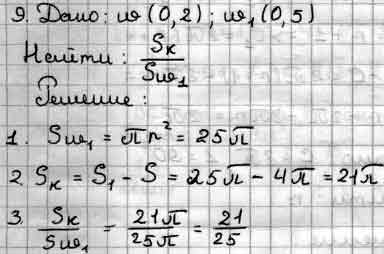 9. Дано: ω (0, 2); ω₁ (0, 5)
Найти: Sк/Sω₁
Решение:
1. Sω₁ = πr² = 25π
2. Sк = S₁ - S = 25π - 4π = 21π
3. Sк/Sω₁ = 21π/25π = 21/25